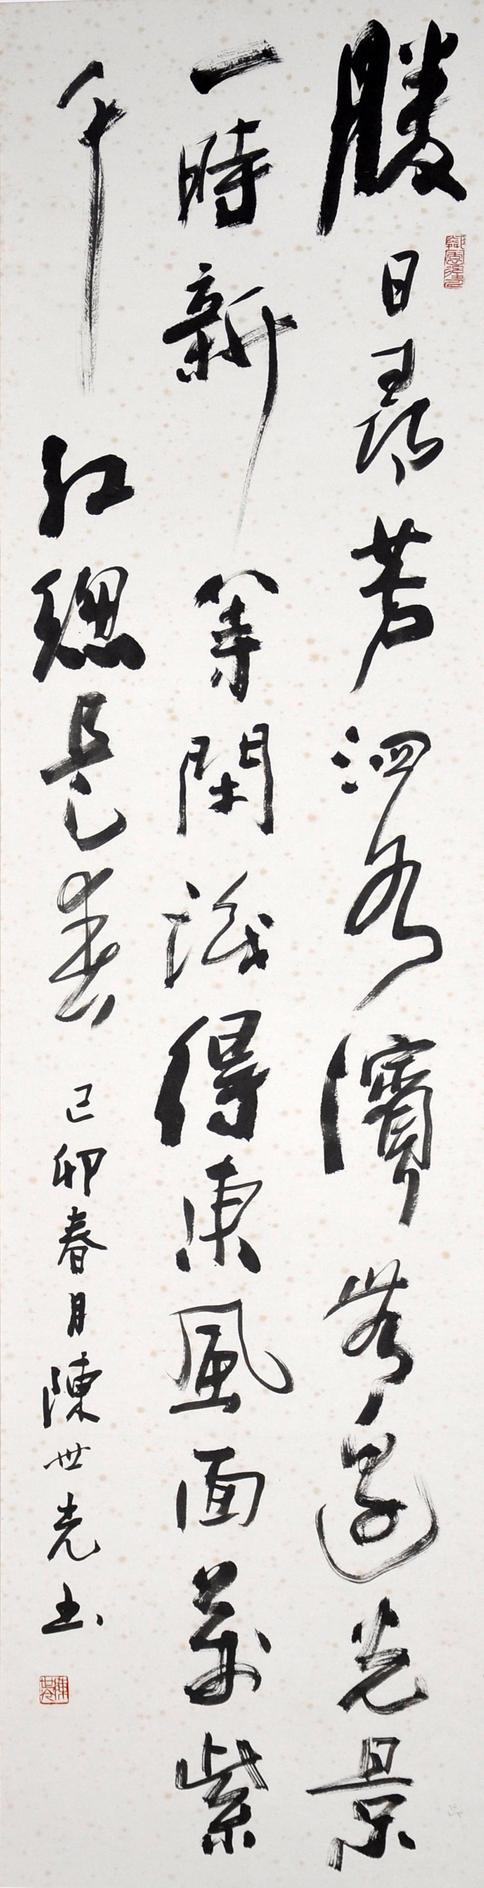 勝日尋芳泗水濱無邊光景
一時新等閒識得東風面萬紫
千紅總是春
己卯春月陳世光書